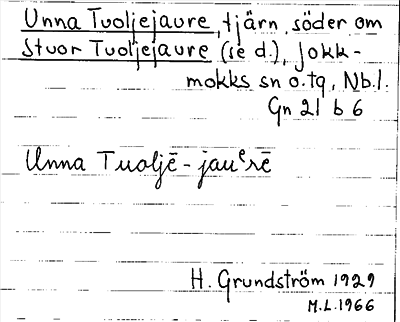 Unna Tuoljejaure, tjärn, söder om
Stuor Tuoljejaure (se d.), Jokk-
mokks sn o. tg, Nb.l.
Gn 21 b 6
Unna Tuoljē-jauᵉrē
H. Grundström 1929
M.L. 1966